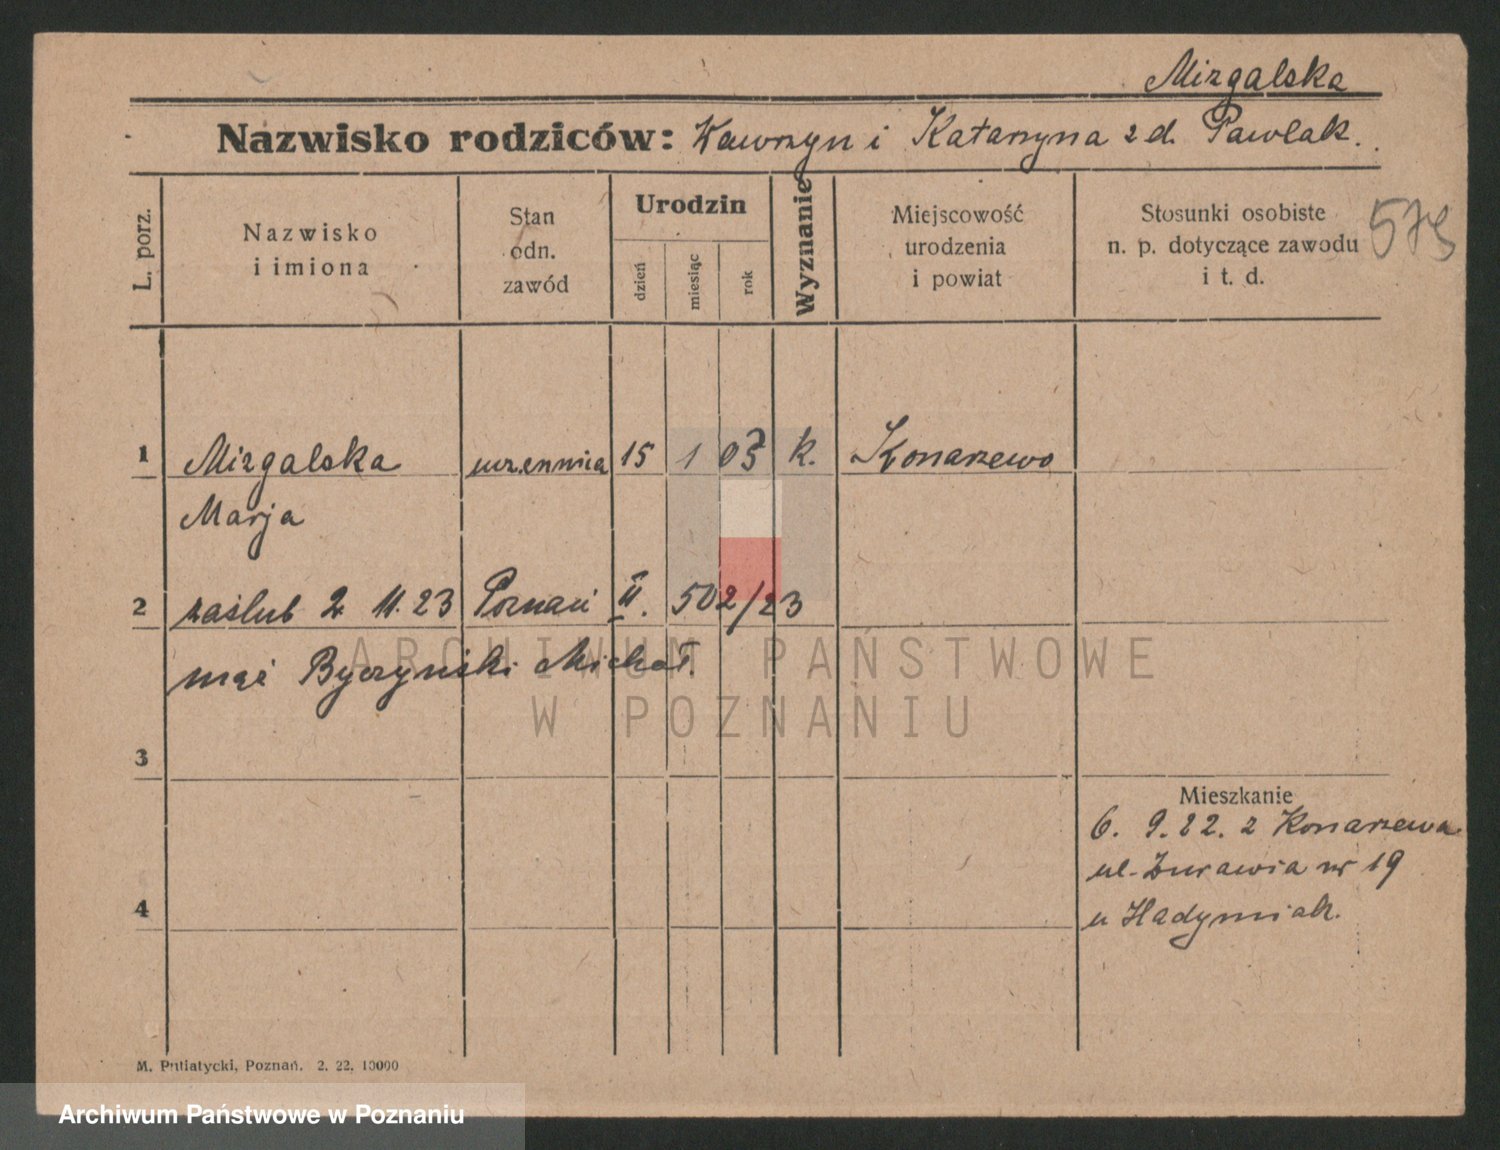 Mizgalska
Nazwisko rodziców: Wawrzyn i Katarzyna z d. Pawlak.
L. porz.
Nazwisko i imiona
Stan odn. zawód
Urodzin
dzień
miesiąc
rok
Wyznanie
Miejscowość urodzenia i powiat
Stosunki osobiste
n. p. dotyczące zawodu
i t. d.
1 Mizgalska uczennica 15 1 03 k. Konarzewo
Marja
2 zaślub 2 11. 23 Poznań II. 502/23
mąż Byczyński Michał.
3
Mieszkanie
6. 9. 22. z Konarzewa
ul. Żurawia nr 19
4
u Hadymiak.
M. Putiatycki, Poznań. 2. 22. 10000
ARCHIWUM PAŃSTWOWE
W POZNANIU
Archiwum Państwowe w Poznaniu